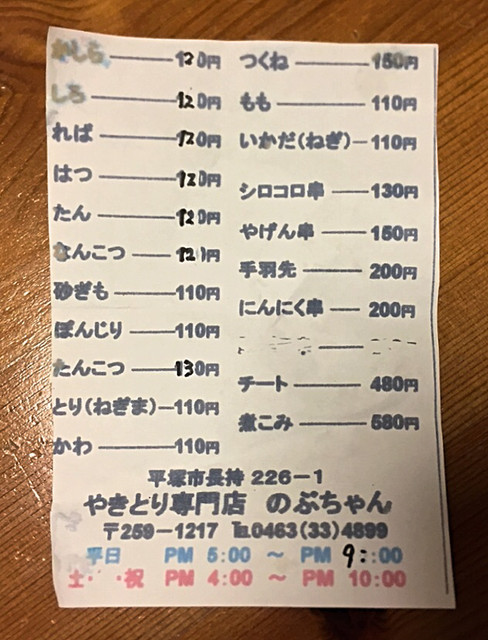 かしら 120円
しろ 120円
ればー 120円
はつ 120円
たん 120円
なんこつ 120円
砂ぎも 110円
ぽんじり 110円
たんこつ 130円
とり(ねぎま) 110円
かわ 110円
つくね 150円
もも 110円
いかだ(ねぎ) 110円
シロコロ串 130円
やげん串 150円
手羽先 200円
にんにく串 200円
チート 480円
煮こみ 580円
平塚市長持 226-1
やきとり専門店 のぶちゃん
〒259-1217 ℡0463(33)4899
平日 PM 5:00 ~ PM 9:00
土・ ・祝 PM 4:00 ~ PM 10:00